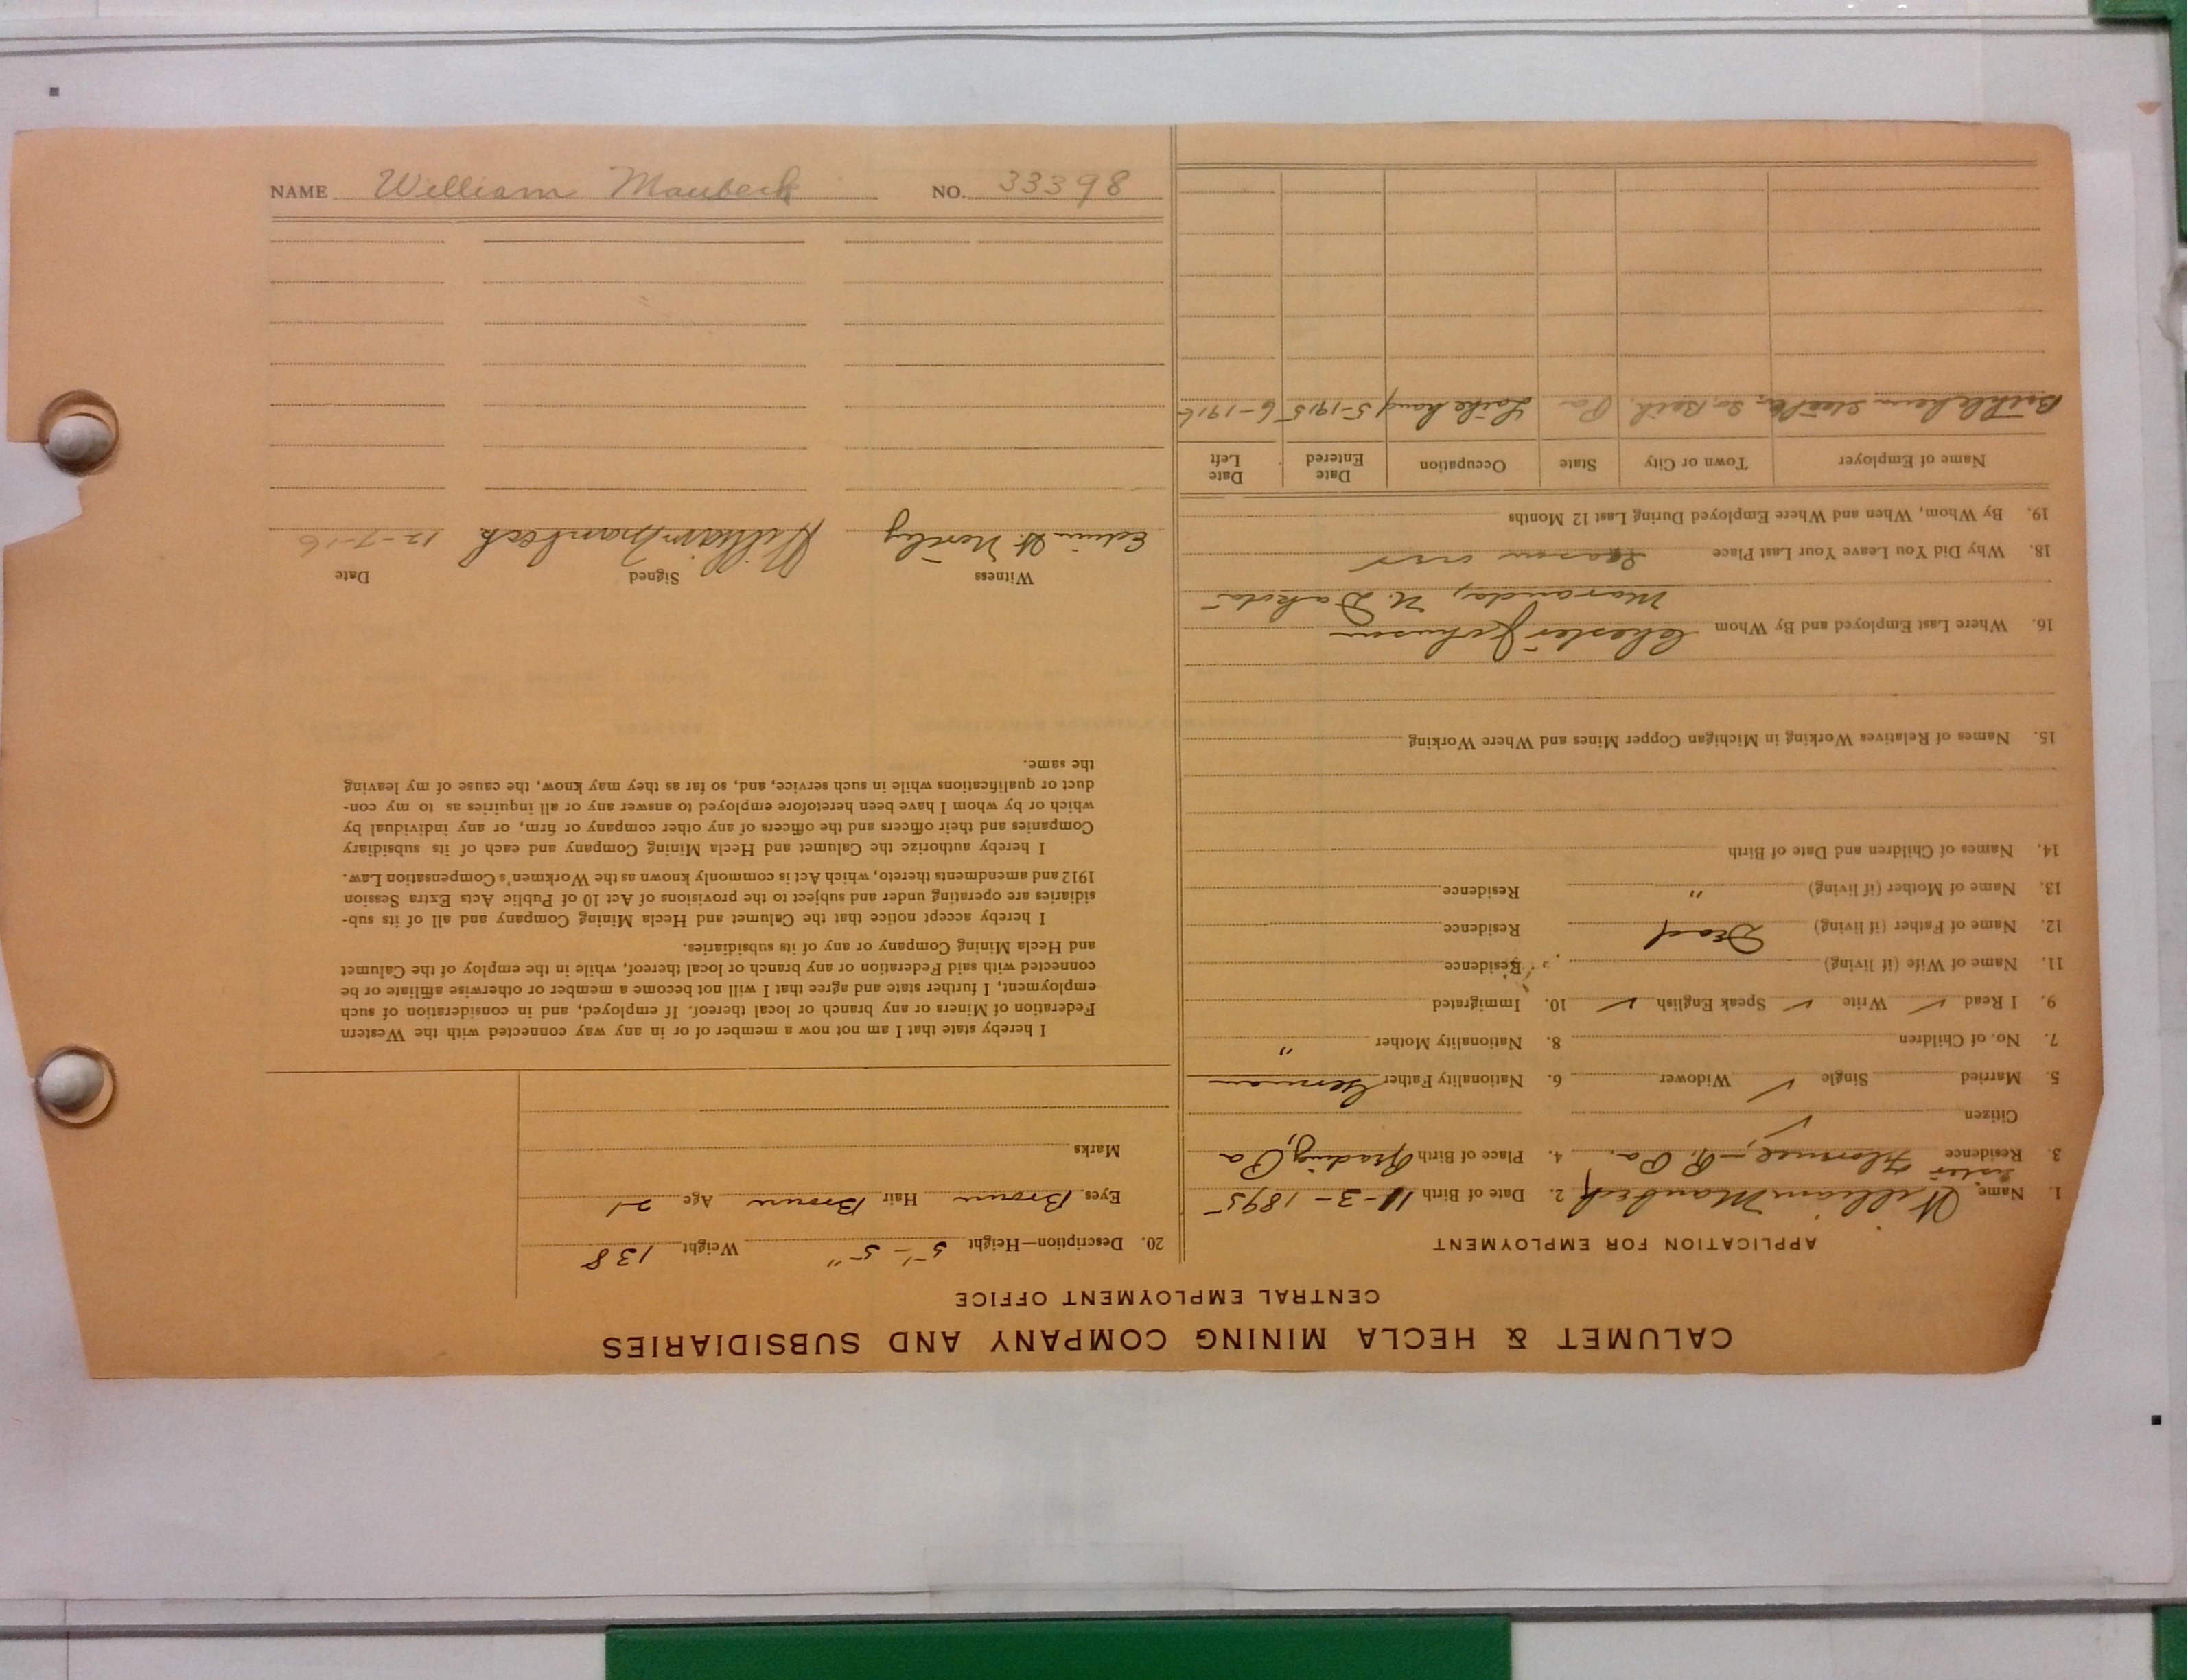 CALUMET & HECLA MINING COMPANY AND SUBSIDIARIES
CENTRAL EMPLOYMENT OFFICE
APPLICATION FOR EMPLOYMENT
1. Name William Maubeck 2. Date of Birth 11-3-1895
sister
3. Residence Pa. 4. Place of Birth Reading, Pa
Citizen ✓
5. Married Single ✓ Widower 6. Nationality Father German
7. No. of Children 8. Nationality Mother "
9. I Read ✓ Write ✓ Speak English ✓ 10. Immigrated
11. Name of Wife (if living) Residence
12. Name of Father (if living) Dead Residence
13. Name of Mother (if living) " Residence
14. Names of Children and Date of Birth
15. Names of Relatives Working in Michigan Copper Mines and Where Working
16. Where Last Employed and By Whom Chester Johnson
N. Dakota
18. Why Did You Leave Your Last Place Season over
19. By Whom, When and Where Employed During Last 12 Months
Name of Employer Town or City State Occupation Date Entered Date Left
Bethlehem Steel So. Beth. Pa Lathe hand 5-1915 6-1916
20. Description—Height 5'-5" Weight 138
Eyes Brown Hair Brown Age 21
Marks
I hereby state that I am not now a member of or in any way connected with the Western
Federation of Miners or any branch or local thereof. If employed, and in consideration of such
employment, I further state and agree that I will not become a member or otherwise affiliate or be
connected with said Federation or any branch or local thereof, while in the employ of the Calumet
and Hecla Mining Company or any of its subsidiaries.
I hereby accept notice that the Calumet and Hecla Mining Company and all of its sub-
sidiaries are operating under and subject to the provisions of Act 10 of Public Acts Extra Session
1912 and amendments thereto, which Act is commonly known as the Workmen's Compensation Law.
I hereby authorize the Calumet and Hecla Mining Company and each of its subsidiary
Companies and their officers and the officers of any other company or firm, or any individual by
which or by whom I have been heretofore employed to answer any or all inquiries as to my con-
duct or qualifications while in such service, and, so far as they may know, the cause of my leaving
the same.
Witness Signed Date
Edwin H. William Maubeck 12-7-16
NAME William Maubeck NO. 33398